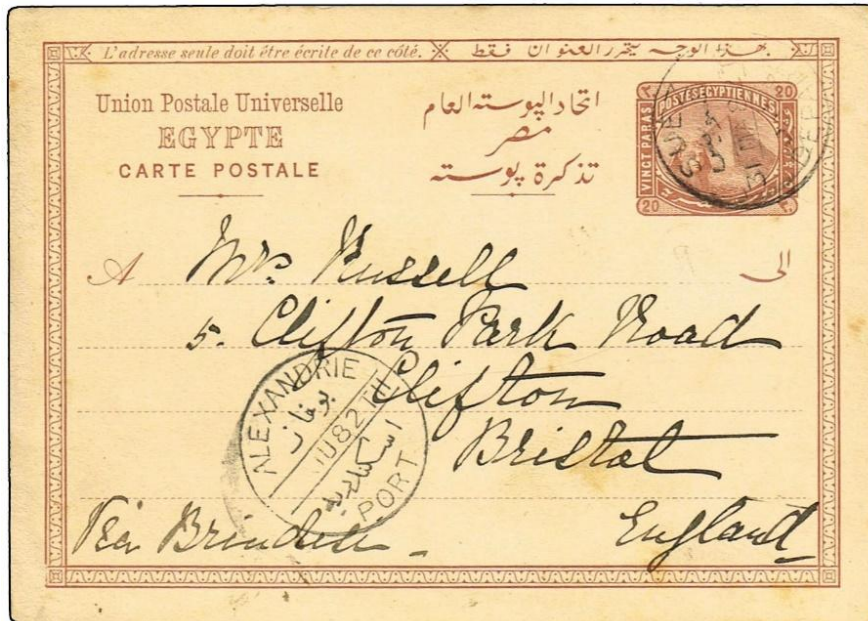 L'adresse seule doit être écrite de ce côté. بهذا الوجه يتحرر العنوان فقط
Union Postale Universelle
EGYPTE
CARTE POSTALE
اتحاد البوسته العام
مصر
تذكرة بوسته
POSTES EGYPTIENNES
VINGT PARAS
20
20
20
SUEZ
A Mrs Russell الى
5. Clifton Park Road
Clifton
Bristol
England
Via Brindisi
ALEXANDRIE
بوغاز
JU 82
اسكندرية
PORT